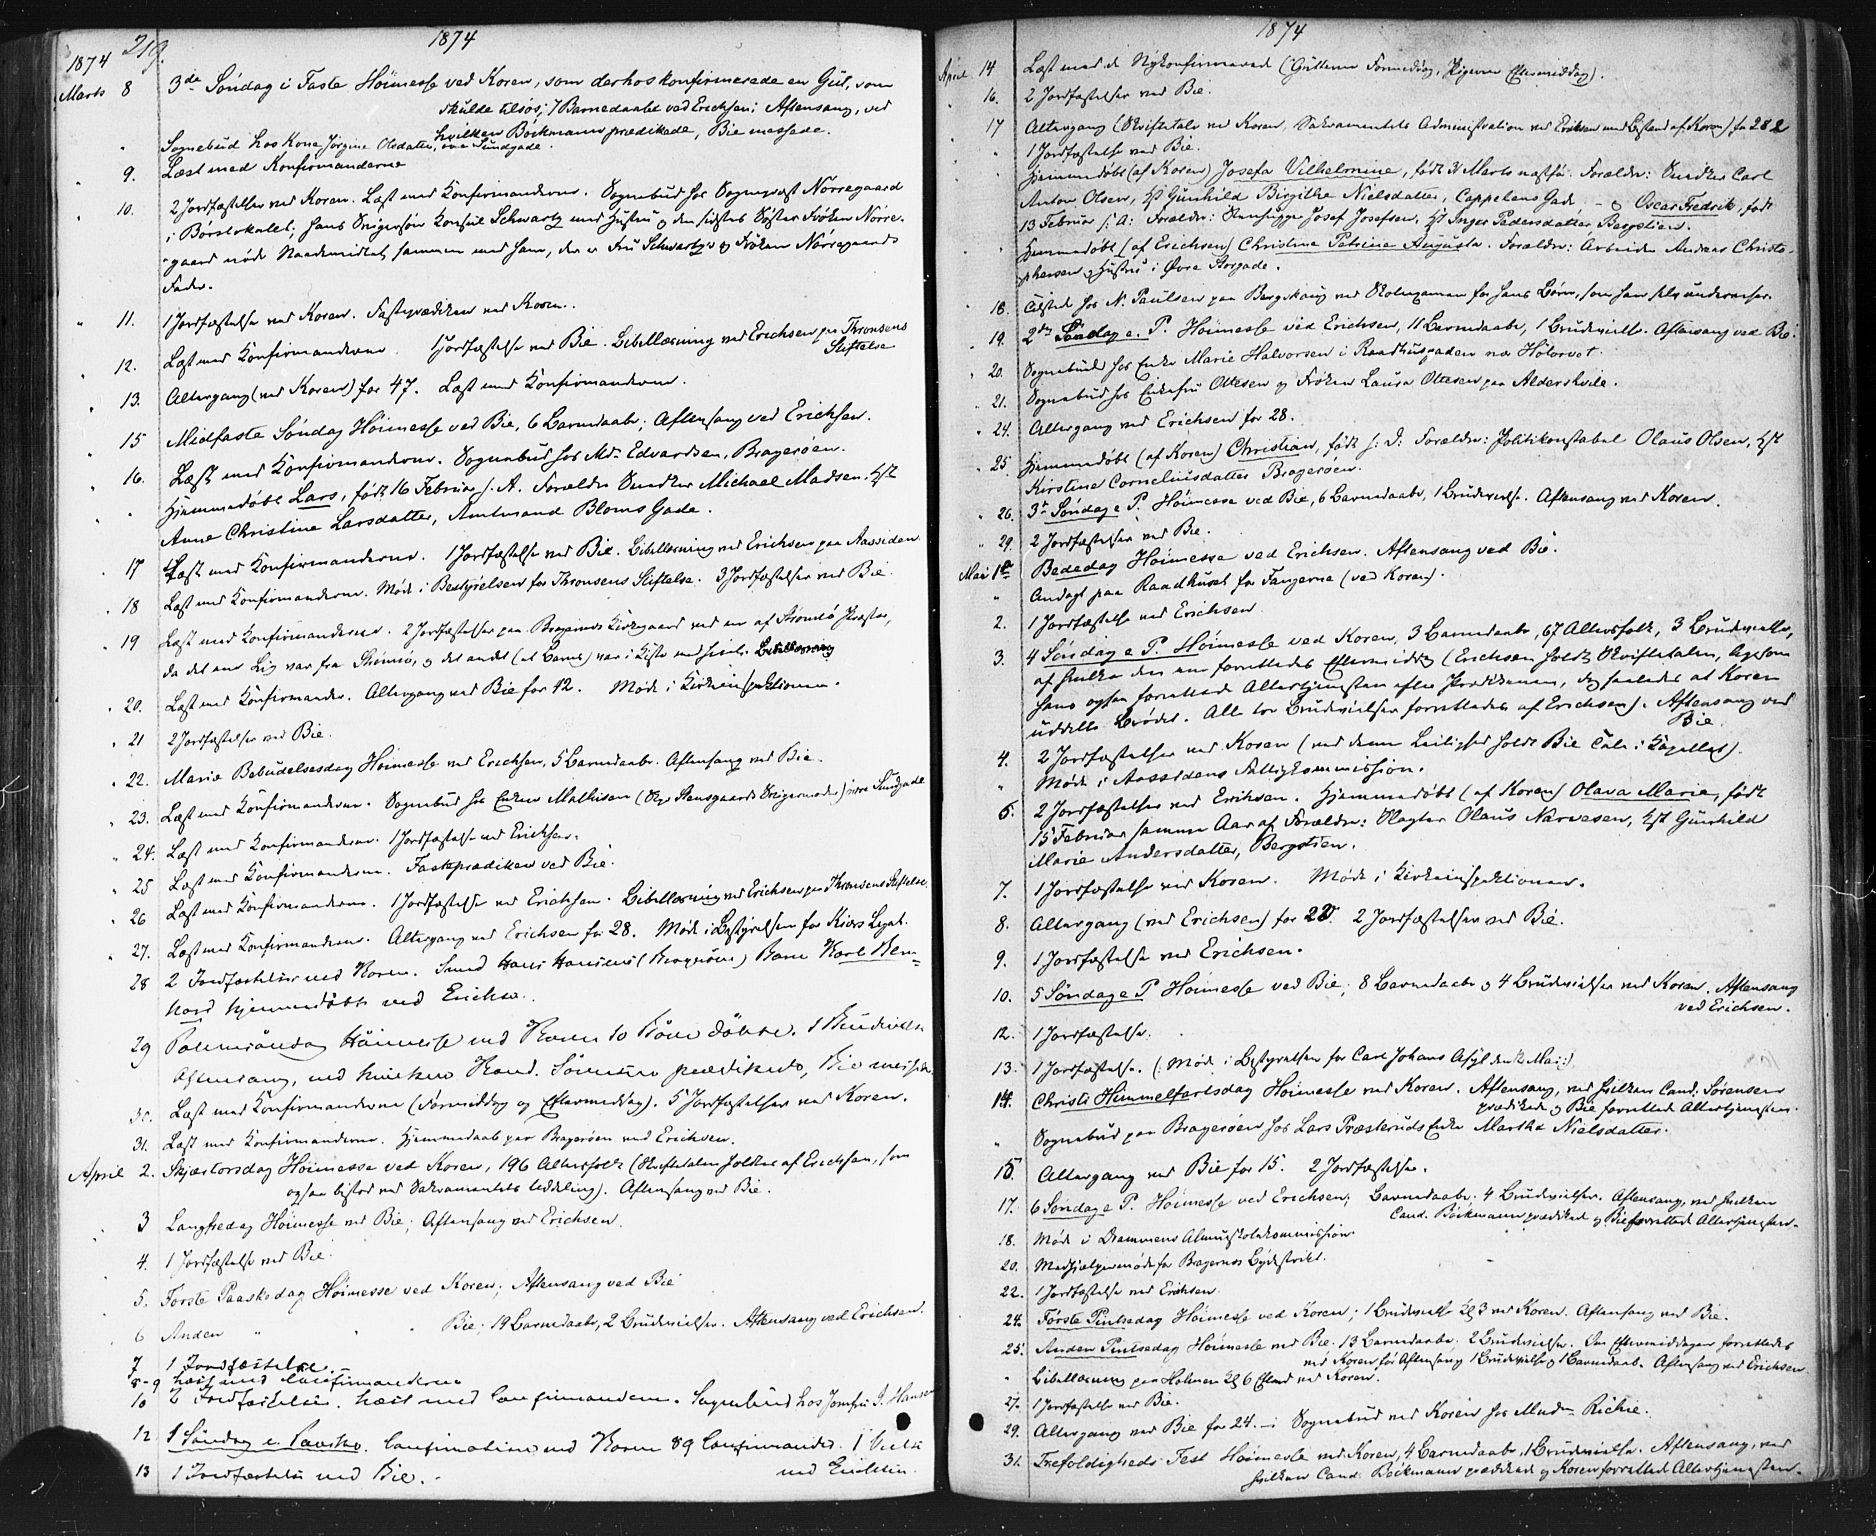 219.
1874
1874
Marts 8 3de Søndag i Faste Høimesse ved Koren, som derhos konfirmerede en Gut, som
skulde tilsøs; 7 Barnedaabe ved Erichsen; Aftensang, ved
hvilken Böckmann prædikede, Bie messede.
" Sognebud hos Kone Jørgine Olsdatter, øvre Sundgade.
" 9. Læst med Konfirmanderne
" 10. 2 Jordfæstelser ved Koren. Læst med Konfirmanderne. Sognebud hos Sogneprest Nörregaard
i Börslokalet, hans Svigersøn Konsul Schwartz med Hustru og den sidstes Søster Frøken Nörre-
gaard nöde Naademidlet sammen med ham, der er Fru Schwartz's og Frøken Nörregaards
Fader.
" 11. 1 Jordfæstelse ved Koren. Fasteprædiken ved Koren.
" 12. Læst med Konfirmanderne. 1 Jordfæstelse ved Bie. Bibellæsning ved Erichsen paa Thronsens
Stiftelse
" 13. Altergang (ved Koren) for 47. Læst med Konfirmanderne.
" 15 Midfaste Søndag Høimesse ved Bie, 6 Barnedaabe; Aftensang ved Erichsen.
" 16. Læst med Konfirmanderne. Sognebud hos Md. Edvardsen, Bragerøen.
" " Hjemmedöbt Lars, født 16 Februar s. A. Forældre Snedker Michael Madsen, Hst
Anne Christine Larsdatter, Amtmand Bloms Gade.
" 17 Læst med Konfirmanderne. 1 Jordfæstelse ved Bie. Bibellæsning ved Erichsen paa Aassiden
" 18 Læst med Konfirmanderne. Møde i Bestyrelsen for Thronsens Stiftelse. 3 Jordfæstelser ved Bie.
" 19 Læst med Konfirmanderne. 2 Jordfæstelser paa Bragernes Kirkegaard ved en af Strømsø Præster,
da det ene Lig var fra Strømsø, og det andet (et Barn) var i Kiste med hint. Bibellæsning
" 20. Læst med Konfirmander. Altergang ved Bie for 12. Møde i Kirkeinspektionen.
" 21 2 Jordfæstelser ved Bie.
" 22. Mariæ Bebudelsesdag Høimesse ved Erichsen, 5 Barnedaabe. Aftensang ved Bie.
" 23. Læst med Konfirmanderne. Sognebud hos Enken Mathisen (Skp. Stensgaards Svigermoder) øvre Sundgade
" 24. Læst med Konfirmanderne. 1 Jordfæstelse ved Erichsen.
" 25 Læst med Konfirmanderne. Fasteprædiken ved Bie.
" 26 Læst med Konfirmanderne. 1 Jordfæstelse ved Erichsen. Bibellæsning ved Erichsen paa Thronsens Stiftelse.
" 27. Læst med Konfirmanderne. Altergang ved Erichsen for 28. Møde i Bestyrelsen for Kiærs Legat.
28 2 Jordfæstelser ved Koren. Smed Hans Hansens (Bragerøen) Barn Karl Bern-
hard hjemmedöbt ved Erichsen.
29 Palmesöndag Höimesse ved Koren 10 Börn döbte. 1 Brudevielse
Aftensang, ved hvilken Kand. Sörensen prædikede, Bie messede.
30. Læst med Konfirmanderne (Formiddag og Eftermiddag). 5 Jordfæstelser ved Koren.
31. Læst med Konfirmanderne. Hjemmedaab paa Bragerøen ved Erichsen.
April 2. Skjærtorsdag Høimesse ved Koren, 196 Altersfolk (Skriftetalen holdtes af Erichsen, som
ogsaa bistod ved Sakramentets Uddeling). Aftensang ved Bie.
3 Langfredag Høimesse ved Bie; Aftensang ved Erichsen.
4. 1 Jordfæstelse ved Bie.
5. Første Paaskedag Høimesse ved Koren; Aftensang ved Bie
6 Anden " " Bie; 19 Barnedaabe, 2 Brudevielser. Aftensang ved Erichsen.
7 1 Jordfæstelse.
8-9 Læst med Confirmanderne
10 2 Jordfæstelser. Læst med Confirmanderne. Sognebud hos Jomfru S. Hansen
12 1 Söndag e. Paaske. Confirmation ved Koren 89 Confirmander. 1 Vielse
ved Erichsen.
13 1 Jordfæstelse ved Bie.
1874
April 14 Læst med de Nykonfirmerede (Gutterne Formiddag, Pigerne Eftermiddag).
" 16. 2 Jordfæstelser ved Bie.
17 Altergang (Skriftetale ved Koren, Sakramentets Administration ved Erichsen med Bistand af Koren) for 282
" " 1 Jordfæstelse ved Bie.
" Hjemmedöbt (af Koren) Josefa Vilhelmine, født 31 Marts næstfor. Forældre: Snedker Carl
Anton Olsen, Hst Gunhild Birgithe Nielsdatter, Cappelens Gade – og Oscar Fredrik, født
13 Februar s. A: Forældre: Stenhugger Josef Josefsen, Hst Inger Pedersdatter, Bergstien.
" " Hjemmedöbt (af Erichsen) Christine Petrine Augusta. Forældre: Arbeider Andreas Christo-
phersen og Hustru i Øvre Storgade.
" 18. Tilsted hos N. Paulsen paa Bergskoug ved Skolexamen for hans Børn, som han selv underviser.
" 19. 2den Søndag e. P. Høimesse ved Erichsen, 11 Barnedaabe, 1 Brudevielse. Aftensang ved Bie.
" 20. Sognebud hos Enke Marie Halvorsen i Raadhusgaden nær Hötorvet.
" 21. Sognebud hos Enkefru Ottesen og Frøken Laura Ottesen paa Aldershvile.
" 24. Altergang ved Erichsen for 28.
" 25 Hjemmedöbt (af Koren) Christian, født s. D: Forældre: Politikonstabel Olaus Olsen, Hst
Kirstine Corneliusdatter Bragerøen.
" 26. 3die Søndag e P. Høimesse ved Bie, 6 Barnedaabe, 1 Brudevielse. Aftensang ved Koren.
" 29. 2 Jordfæstelser ved Bie.
Mai 1ste Bededag Høimesse ved Erichsen. Aftensang ved Bie.
" Andagt paa Raadhuset for Fangerne (ved Koren).
2. 1 Jordfæstelse ved Erichsen.
3. 4 Søndag e P. Høimesse ved Koren, 3 Barnedaabe, 67 Altersfolk, 3 Brudevielser,
af hvilke den ene forrettedes Eftermiddag (Erichsen holdt Skriftetalen, ligesom
han ogsaa forrettede Altertjenesten efter Prædikenen, dog saaledes at Koren
uddelte Brødet. Alle tre Brudevielser forrettedes af Erichsen). Aftensang ved
Bie.
4. 2 Jordfæstelser ved Koren (ved denne Leilighed holdt Bie Tale i Kapellet).
" Møde i Aassidens Fattigkommission.
6. 2 Jordfæstelser ved Erichsen. Hjemmedöbt (af Koren) Olava Marie, født
15 Februar samme Aar af Forældre: Slagter Olaus Narvesen, Hst Gunhild
Marie Andersdatter, Bergstien.
7. 1 Jordfæstelse ved Koren. Møde i Kirkeinspektionen.
8. Altergang (ved Erichsen) for 20. 2 Jordfæstelser ved Bie.
9. 1 Jordfæstelse ved Erichsen.
10. 5 Søndag e P Høimesse ved Bie; 8 Barnedaabe og 4 Brudevielser ved Koren. Aftensang
ved Erichsen.
12. 1 Jordfæstelse.
13. 1 Jordfæstelse. (: Møde i Bestyrelsen for Carl Johans Asyl den 12 Mai:)
14. Christi Himmelfartsdag Høimesse ved Koren. Aftensang, ved hvilken Cand. Sörensen
prædikede og Bie forrettede Altertjenesten.
" Sognebud paa Bragerøen hos Lars Præsteruds Enke Marthe Nielsdatter.
15 Altergang ved Bie for 15. 2 Jordfæstelser.
17. 6 Søndag e P. Høimesse ved Erichsen; Barnedaabe. 4 Brudevielser. Aftensang, ved hvilken
Cand. Böckmann prædikede og Bie forrettede Altertjenesten.
18. Møde i Drammens Almueskolekommission
20. Medhjælpermøde for Bragernes Bydistrikt.
22. 1 Jordfæstelse ved Erichsen.
24. Første Pintsedag Høimesse ved Koren; 1 Brudevielse Kl 3 ved Koren. Aftensang ved Bie.
25. Anden Pintsedag Høimesse ved Bie. 13 Barnedaabe. 2 Brudevielser. Om Eftermiddagen forrettedes
ved Koren før Aftensang 1 Brudevielse og 1 Barnedaab. Aftensang ved Erichsen
" Bibellæsning paa Holmen Kl 6 Efterm. ved Koren.
27. 1 Jordfæstelse ved Bie.
29. Altergang ved Bie for 24. – Sognebud ved Koren hos Madm Richie.
31. Trefoldigheds Fest Høimesse ved Koren, 4 Barnedaabe, 1 Brudevielse. Aftensang, ved
hvilken Cand. Böckmann prædikede og Koren forrettede Altertjenesten.